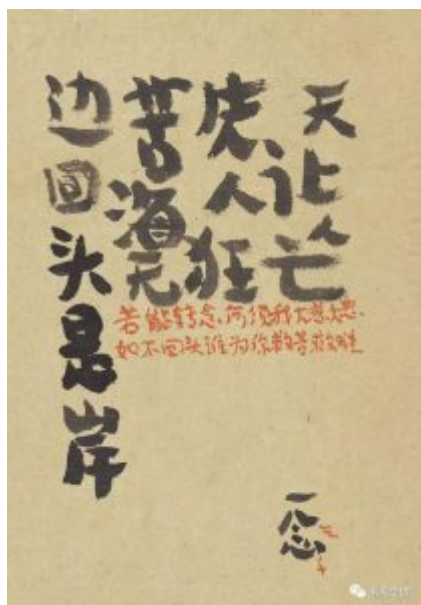 天让人亡
人狂
苦海无
边回头是岸
若能转念、何须我大慈大悲、
如不回头谁为你救苦救难
一念